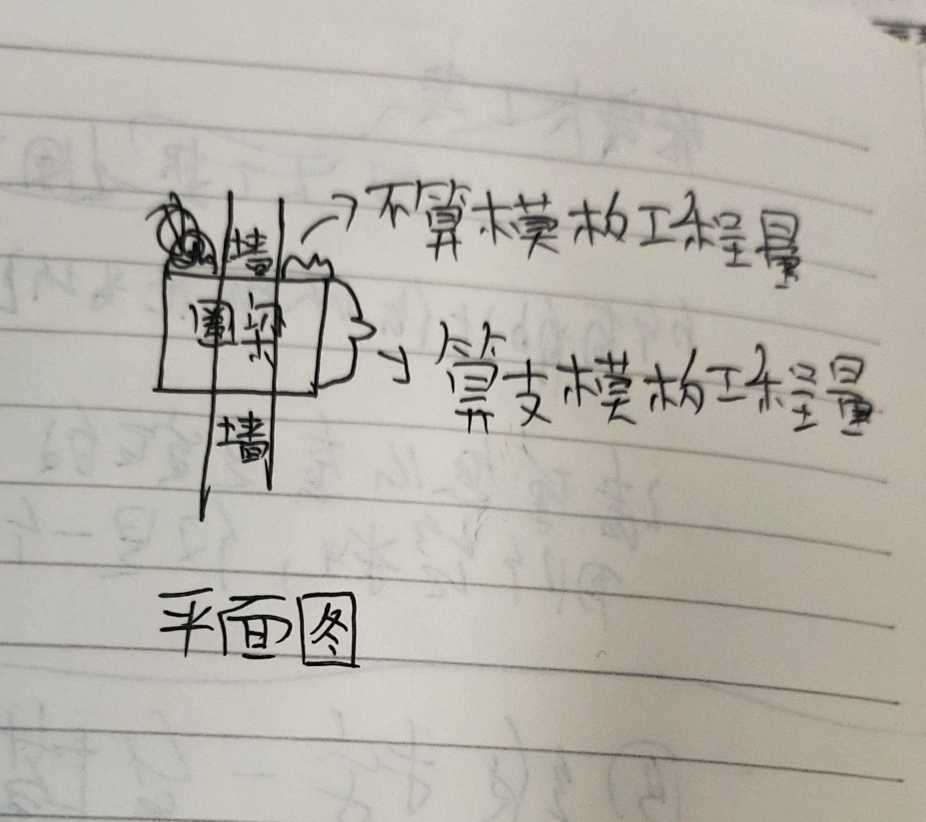 不算模板工程量
墙
圈梁
算支模板工程量
墙
平面图